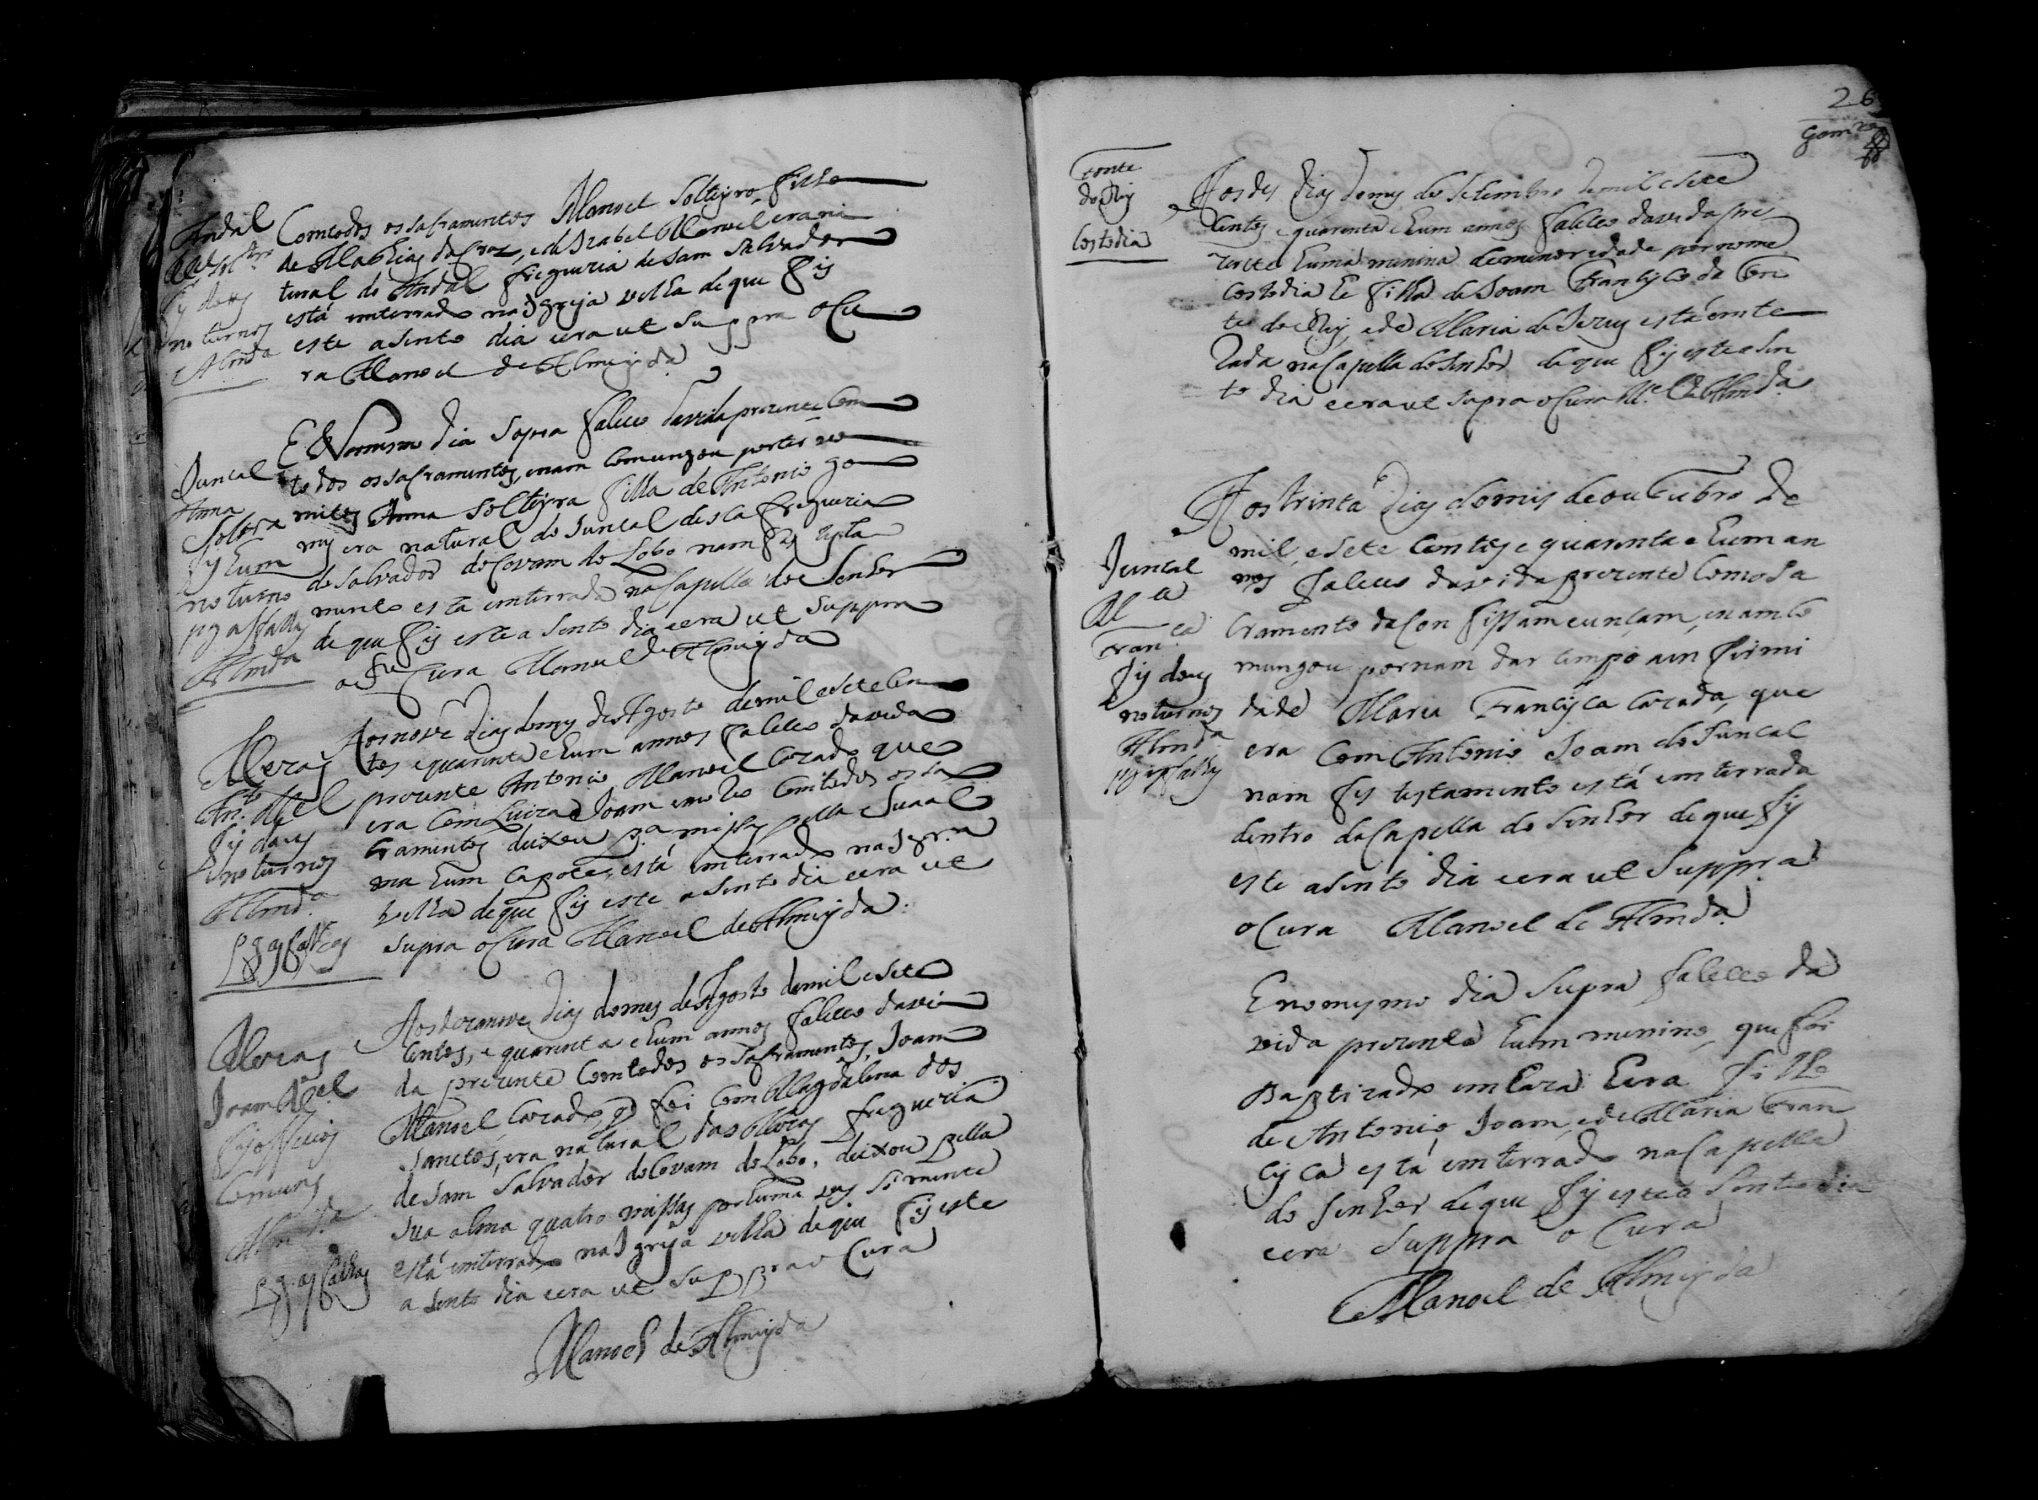 Andal
Comtodos os saframentos Manoel Solteyro filho
de Mathias da Cros, e de Izabel Manoel era na
tural do Andal freguezia de Sam Salvador
está emterrado na Igreja velha de que fis
este asento dia eera ut Suppra o Cu
ra Manoel de Almeyda
noturnos
Almda
E no mesmo dia Sopra faleceo davida prezente Com
todos os saframentos, enam Comungou por ter vo
mitos Anna Solteyra filha de Antonio go
mes era natural do Juncal desta freguezia
do Salvador do Covam do Lobo nam fes testa
mento está emterrada na Capella do Senhor
de que fis este asento dia eera ut Suppra
o Cura Manoel de Almeyda
Juncal
Anna
Soltera
fis hum
noturno
Almda
Aos nove dias do mes de Agosto de mil e sete Cen
tos e quarenta e hum annos faleceo da vida
prezente Antonio Manoel Cazado que
era Com Luiza Joam Com todos os sa
framentos deixou pa missas pella Sua al
ma hum Capote, está emterrado na Igra
velha de que fis este asento dia eera ut
supra o Cura Manoel de Almeyda.
Meras
Anto. Mel
fis dous
noturnos
Almda.
Aos dezanove dias do mes de Agosto de mil e sete
Centos, e quarenta e hum annos faleceo da vi
da prezente Com todos os saframentos, Joam
Manoel Cazado q foi Com Magdalena dos
Sanctos, era natural das Meras freguezia
de Sam Salvador do Covam do Lobo, deixou pella
sua alma quatro missas por huma ves sómente
está emterrado na Igreja velha de que fis este
asento dia eera ut Suppra o Cura
Manoel de Almeyda
Meras
Joam Mel
fis officios
Comuns
Almda
26
Gomes
Fonte
do Rey
Costodia
Aos des dias do mes de Setembro de mil e sete
Centos e quarenta e hum annos faleceo davida pre
zente huma minina de menor idade por nome
Costodia he filha de Joam Francisco da Fon
te do Rey, e de Maria de Jezus está emte
rada na Capella do Senhor de que fis este asen
to dia eera ut Supra o Cura Mel. de Almda.
Aos trinta dias do mes de outubro de
mil, e sete Centos e quarenta e hum an
nos faleceo davida prezente Com o Sa
cramento da Confissam e unçam, e nam Co
mungou por nam dar tempo a infirmi
dade Maria Francisca Cazada, que
era Com Antonio Joam do Juncal
nam fes testamento está emterrada
dentro da Capella do Senhor de que fis
este asento dia eera ut Suppra
o Cura Manoel de Almda.
Juncal
Ma
Franca
fis dous
noturnos
Almda
E no mesmo dia Supra faleceo da
vida prezente hum minino, que foi
Baptizado em Caza Eera filho
de Antonio Joam, e de Maria Fran
cisca está emterrado na Capella
do Senhor de que fis este asento dia
eera Suppra o Cura
Manoel de Almeyda